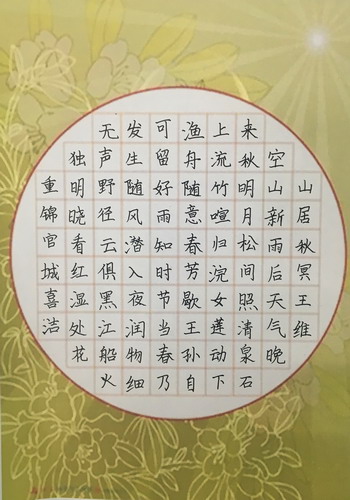 山居秋冥王维
空山新雨后天气晚
来秋明月松间照清泉石
上流竹喧归浣女莲动下
渔舟随意春芳歇王孙自
可留好雨知时节当春乃
发生随风潜入夜润物细
无声野径云俱黑江船火
独明晓看红湿处花
重锦官城喜洁